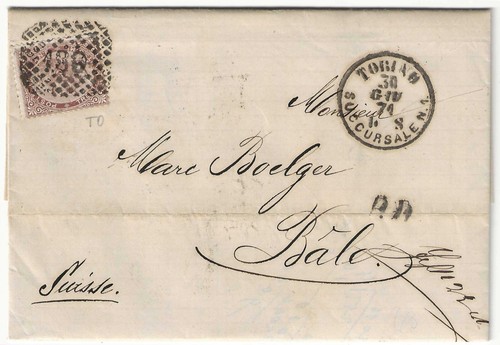 189
TO
TORINO
30
GIU
74
1. S
SUCCURSALE N. 1.
Monsieur
Marc Boelger
P.D.
Bâle.
Suisse.